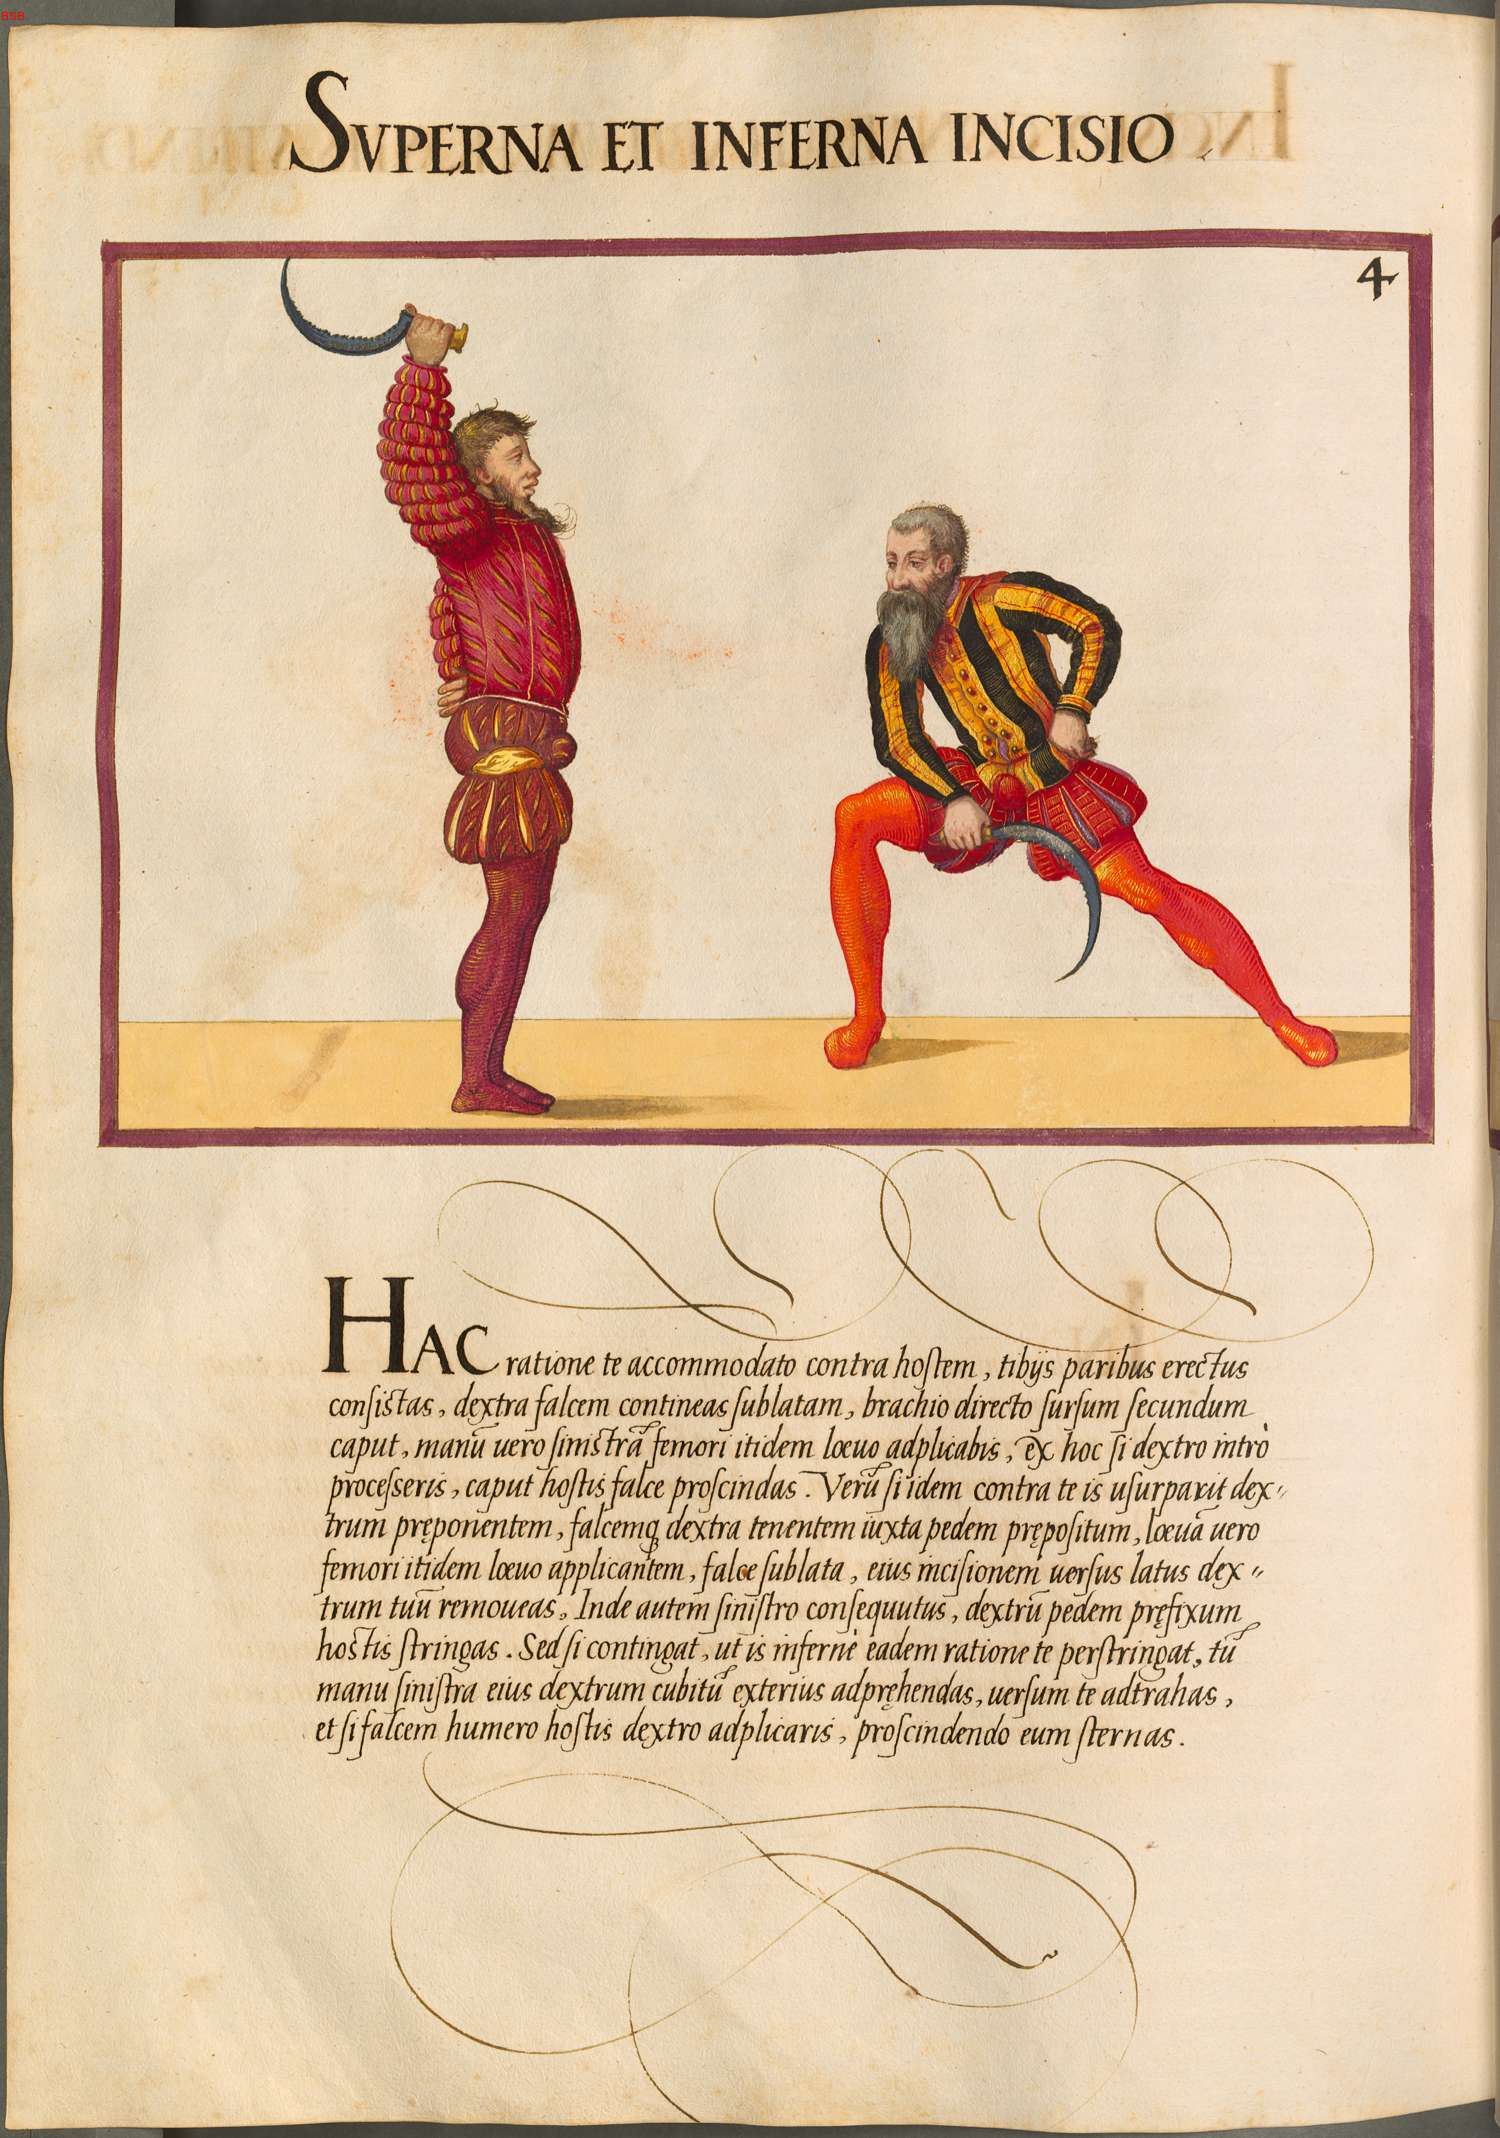 BSB
SVPERNA ET INFERNA INCISIO
4
HAC ratione te accommodato contra hoſtem, tibijs paribus erectus
conſistas, dextra falcem contineas ſublatam, brachio directo ſurſum ſecundum
caput, manū uero ſinistrā femori itidem loeuo adplicabis, ex hoc ſi dextro intrò
proceſſeris, caput hoſtis falce proſcindas. Verū ſi idem contra te is uſurparit dex〃
trum pręponentem, falcemq dextra tenentem iuxta pedem prępoſitum, loeuā uero
femori itidem loeuo applicantem, falce ſublata, eius inciſionem uerſus latus dex〃
trum tuū remoueas. Inde autem ſiniſtro conſequutus, dextrū pedem pręfixum
hoſtis ſtringas. Sed ſi contingat, ut is infernè eadem ratione te perſtringat, tū
manu ſiniſtra eius dextrum cubitū exterius adpręhendas, uerſum te adtrahas,
et ſi falcem humero hoſtis dextro adplicaris, proſcindendo eum ſternas.